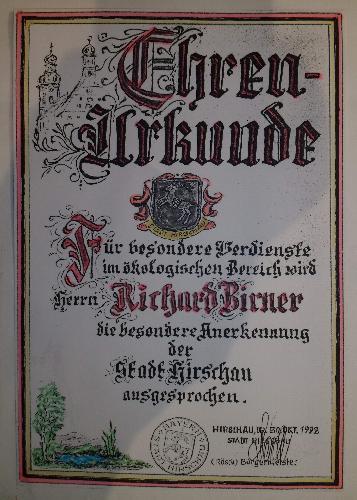 Ehren-
Urkunde
STADT HIRSCHAU
Für besondere Verdienste
im ökologischen Bereich wird
Herrn Richard Birner
die besondere Anerkennung
der
Stadt Hirschau
ausgesprochen.
HIRSCHAU, OKT. 1992
STADT HIRSCHAU
Bürgermeister